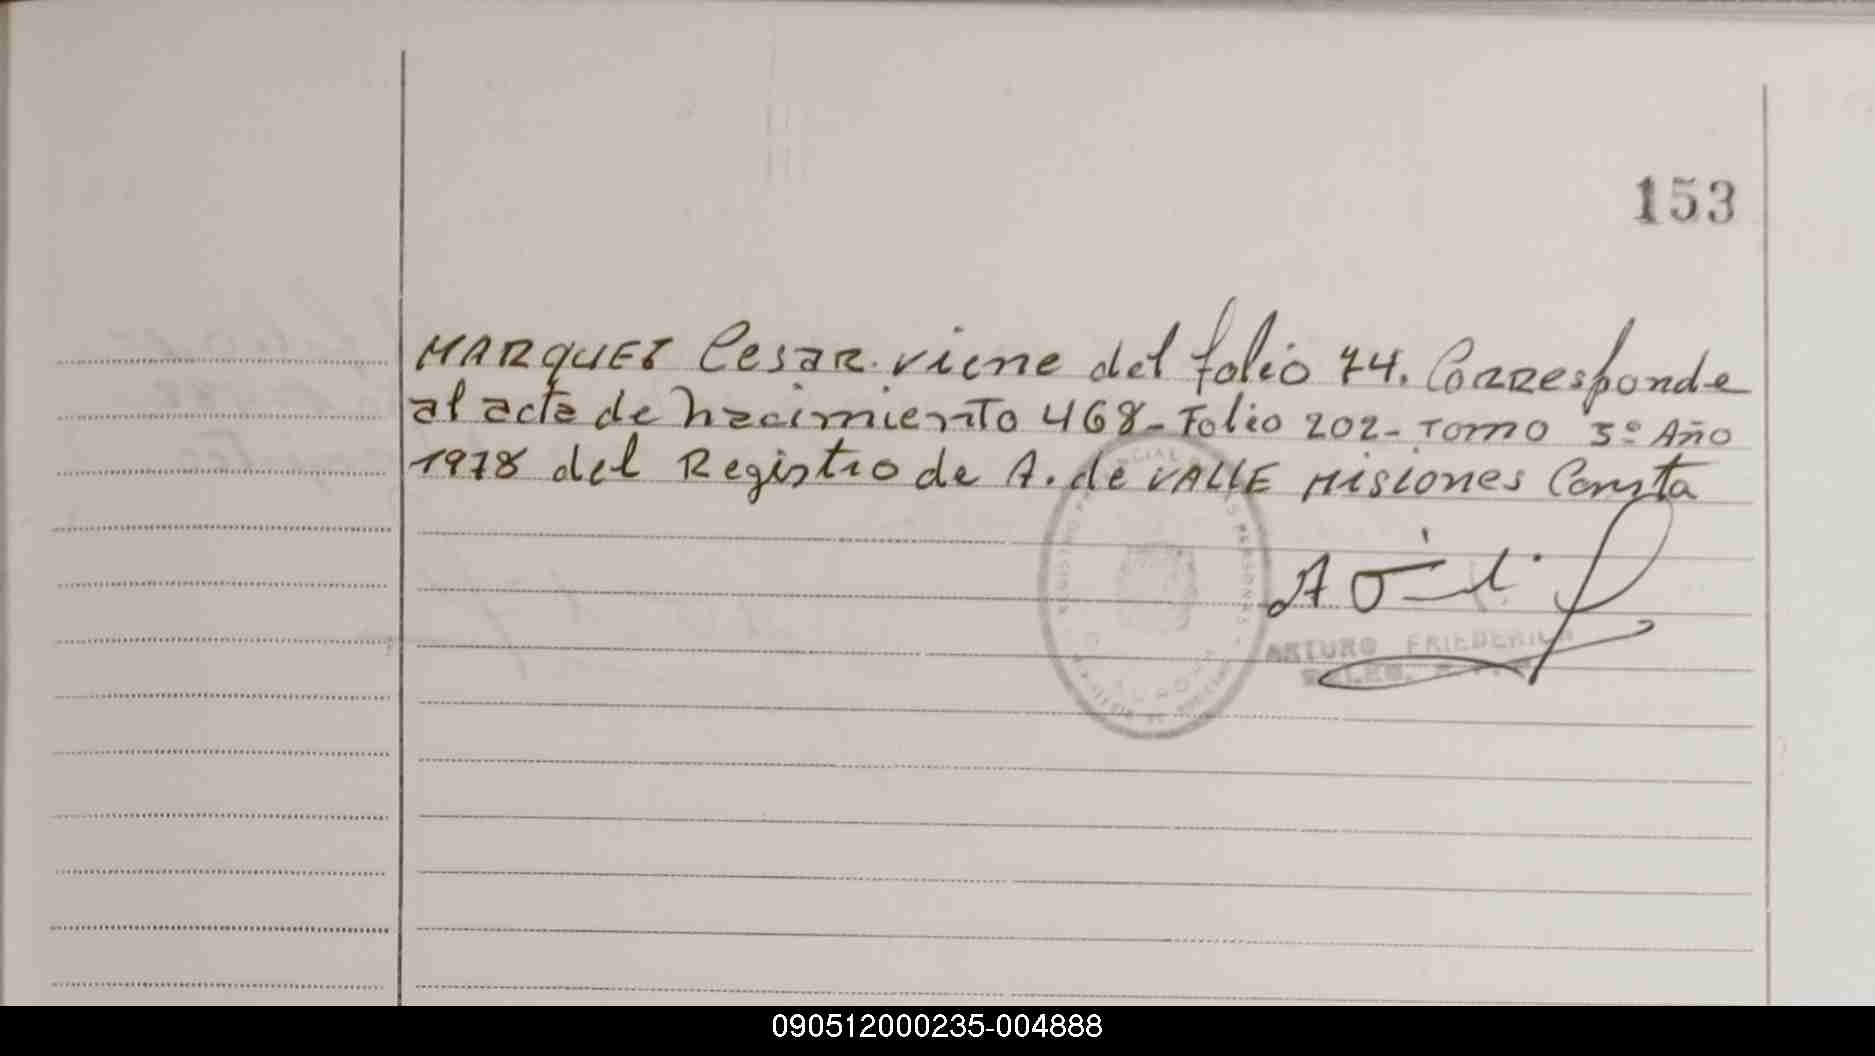 153
MARQUEZ Cesar. viene del folio 74. Corresponde
al acta de nacimiento 468- Folio 202- Tomo 3º Año
1978 del Registro de A. de VALLE Misiones Consta
ARTURO FRIEDERICH
090512000235-004888